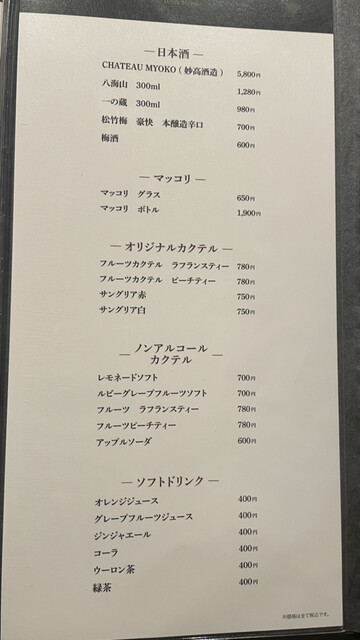 ― 日本酒 ―
CHATEAU MYOKO ( 妙高酒造 ) 5,800円
八海山 300ml 1,280円
一の蔵 300ml 980円
松竹梅 豪快 本醸造辛口 700円
梅酒 600円
― マッコリ ―
マッコリ グラス 650円
マッコリ ボトル 1,900円
― オリジナルカクテル ―
フルーツカクテル ラフランスティー 780円
フルーツカクテル ピーチティー 780円
サングリア赤 750円
サングリア白 750円
― ノンアルコール
カクテル ―
レモネードソフト 700円
ルビーグレープフルーツソフト 700円
フルーツ ラフランスティー 780円
フルーツピーチティー 780円
アップルソーダ 600円
― ソフトドリンク ―
オレンジジュース 400円
グレープフルーツジュース 400円
ジンジャエール 400円
コーラ 400円
ウーロン茶 400円
緑茶 400円
※価格は全て税込です。